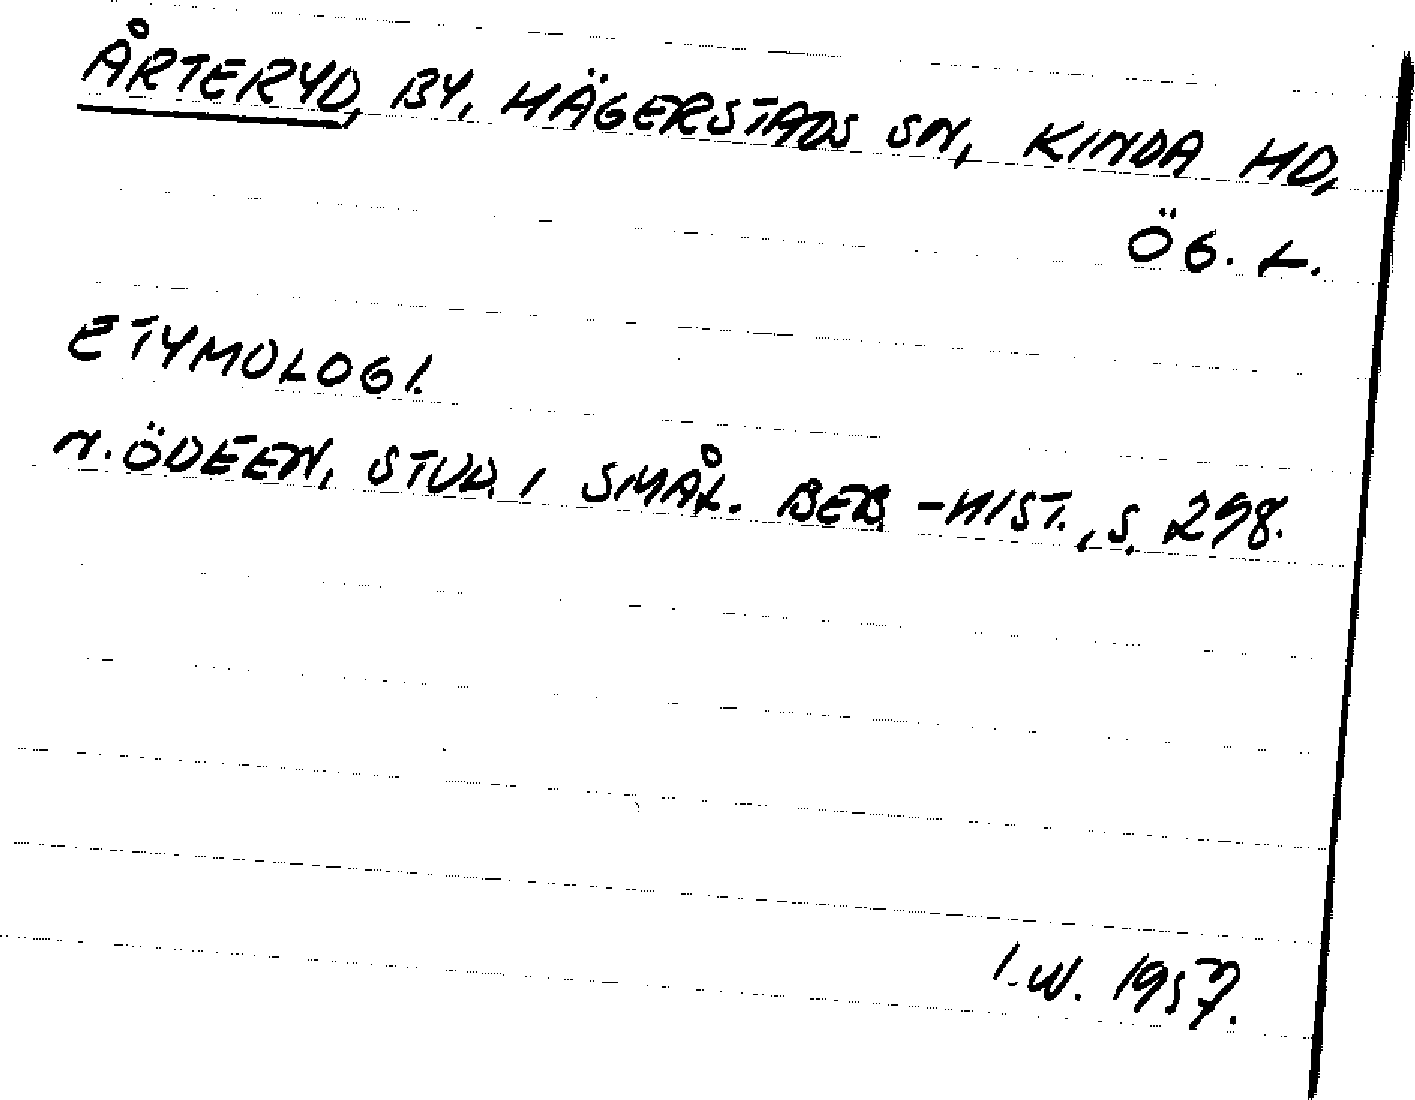 ÅRTERYD, BY, HÄGERSTADS SN, KINDA HD,
ÖG. L.
ETYMOLOGI.
N. ÖDEEN, STUD. I SMÅL. BEB.-HIST., S. 298.
I.W. 1957.